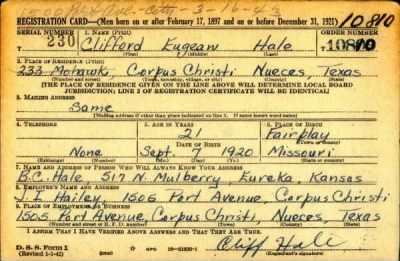 REGISTRATION CARD—(Men born on or after February 17, 1897 and on or before December 31, 1921) 10810
SERIAL NUMBER 1. NAME (Print) ORDER NUMBER
230 Clifford Eugean Hale 10810
(First) (Middle) (Last)
2. PLACE OF RESIDENCE (Print)
233 Mohawk, Corpus Christi Nueces, Texas
[THE PLACE OF RESIDENCE GIVEN ON THE LINE ABOVE WILL DETERMINE LOCAL BOARD
JURISDICTION; LINE 2 OF REGISTRATION CERTIFICATE WILL BE IDENTICAL]
3. MAILING ADDRESS
Same
[Mailing address if other than place indicated on line 2. If same insert word same]
4. TELEPHONE 5. AGE IN YEARS 6. PLACE OF BIRTH
21 Fairplay
DATE OF BIRTH (Town or county)
None Sept. 7 1920 Missouri
(Exchange) (Number) (Mo.) (Day) (Yr.) (State or country)
7. NAME AND ADDRESS OF PERSON WHO WILL ALWAYS KNOW YOUR ADDRESS
B.C. Hale 517 N. Mulberry Eureka, Kansas
8. EMPLOYER'S NAME AND ADDRESS
J. I. Hailey, 1505 Port Avenue, Corpus Christi
9. PLACE OF EMPLOYMENT OR BUSINESS
1505 Port Avenue, Corpus Christi, Nueces, Texas
(Number and street or R. F. D. number) (Town) (County) (State)
I AFFIRM THAT I HAVE VERIFIED ABOVE ANSWERS AND THAT THEY ARE TRUE.
D. S. S. Form 1
(Revised 1-1-42) 16-21630-1 Cliff Hale
(Registrant's signature)